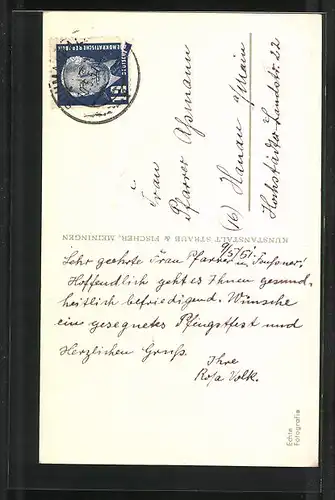 DEUTSCHE
DEMOKRATISCHE REPUBLIK
Frau
Pfarrer Assmann
(16) Hanau a/Main
Hochstädter-Landstr. 22
KUNSTANSTALT STRAUB & FISCHER, MEININGEN
9/5/51.
Sehr geehrte Frau Pfarrer u.
Hoffendlich geht es Ihnen gesund-
heitlich befriedigend. Wünsche
ein gesegnetes Pfingstfest und
Herzlichen Gruß.
Ihre
Rosa Volk.
Echte
Fotografie